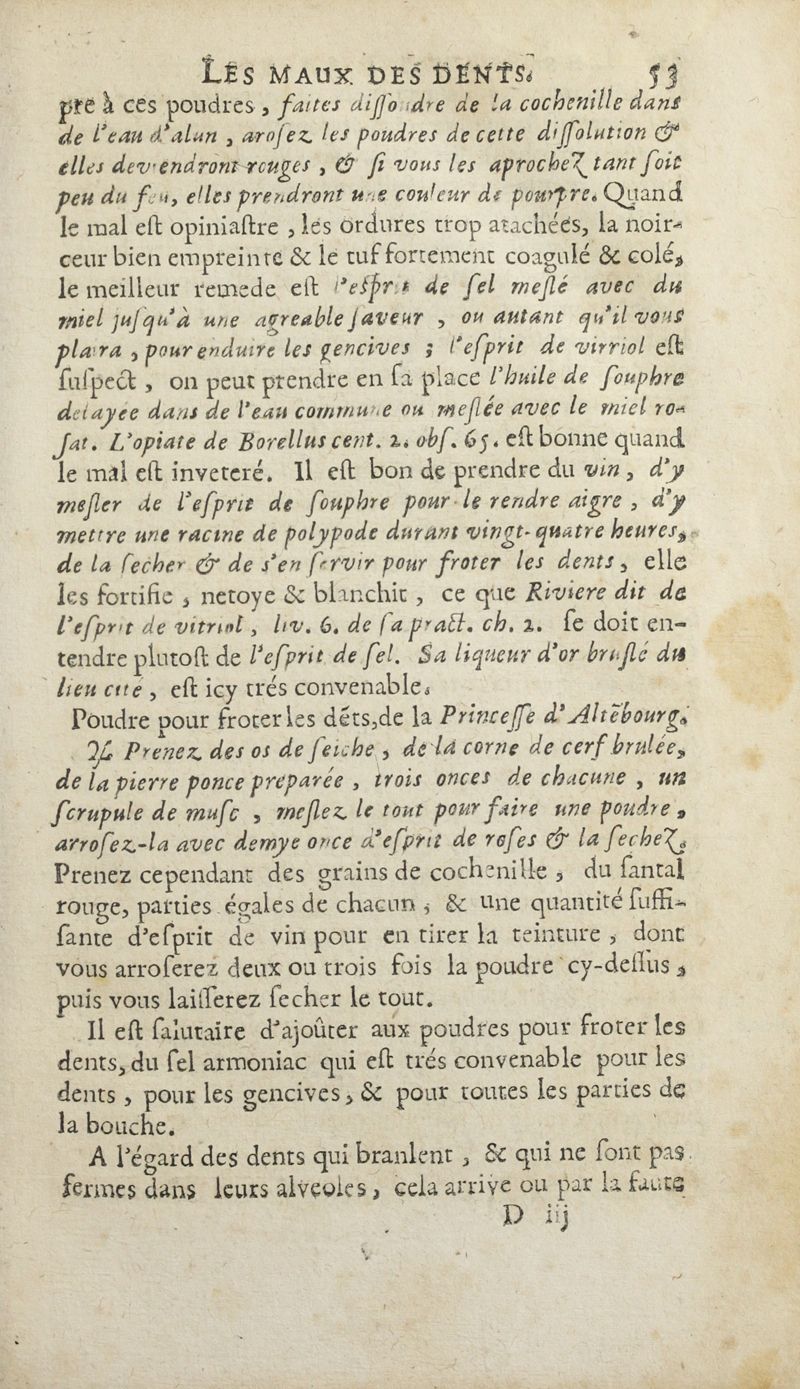 LES MAUX DES DENTS. 53
pre à ces poudres, faites dissoudre de la cochenille dans
de l'eau d'alun, arosez les poudres de cette dissolution &
elles deviendront rouges, & si vous les aprochez tant soit
peu du feu, elles prendront une couleur de pourpre. Quand
le mal est opiniastre, les ordures trop atachées, la noir-
ceur bien empreinte & le tuf fortement coagulé & colé,
le meilleur remede est l'esprit de sel meslé avec du
miel jusqu'à une agreable saveur, ou autant qu'il vous
plaira, pour enduire les gencives; l'esprit de virriol est
suspect, on peut prendre en sa place l'huile de souphre
delayée dans de l'eau commune ou meslée avec le miel ro-
sat. L'opiate de Borellus cent. 2. obs. 65. est bonne quand
le mal est inveteré. Il est bon de prendre du vin, d'y
mesler de l'esprit de souphre pour le rendre aigre, d'y
mettre une racine de polypode durant vingt-quatre heures,
de la secher & de s'en servir pour froter les dents, elle
les fortifie, netoye & blanchit, ce que Riviere dit de
l'esprit de vitriol, liv. 6. de sa pract. ch. 2. se doit en-
tendre plutost de l'esprit de sel. Sa liqueur d'or bruslé du
lieu cité, est icy trés convenable.
Poudre pour froter les dẽts, de la Princesse d'Altẽbourg.
℞ Prenez des os de seiche, de la corne de cerf brulée,
de la pierre ponce preparée, trois onces de chacune, un
scrupule de musc, meslez le tout pour faire une poudre,
arrosez-la avec demye once d'esprit de roses & la sechez.
Prenez cependant des grains de cochenille, du santal
rouge, parties égales de chacun, & une quantité suffi-
sante d'esprit de vin pour en tirer la teinture, dont
vous arroserez deux ou trois fois la poudre cy-dessus,
puis vous laisserez secher le tout.
Il est salutaire d'ajoûter aux poudres pour froter les
dents, du sel armoniac qui est trés convenable pour les
dents, pour les gencives, & pour toutes les parties de
la bouche.
A l'égard des dents qui branlent, & qui ne sont pas
fermes dans leurs alveoles, cela arrive ou par la faute
D iij